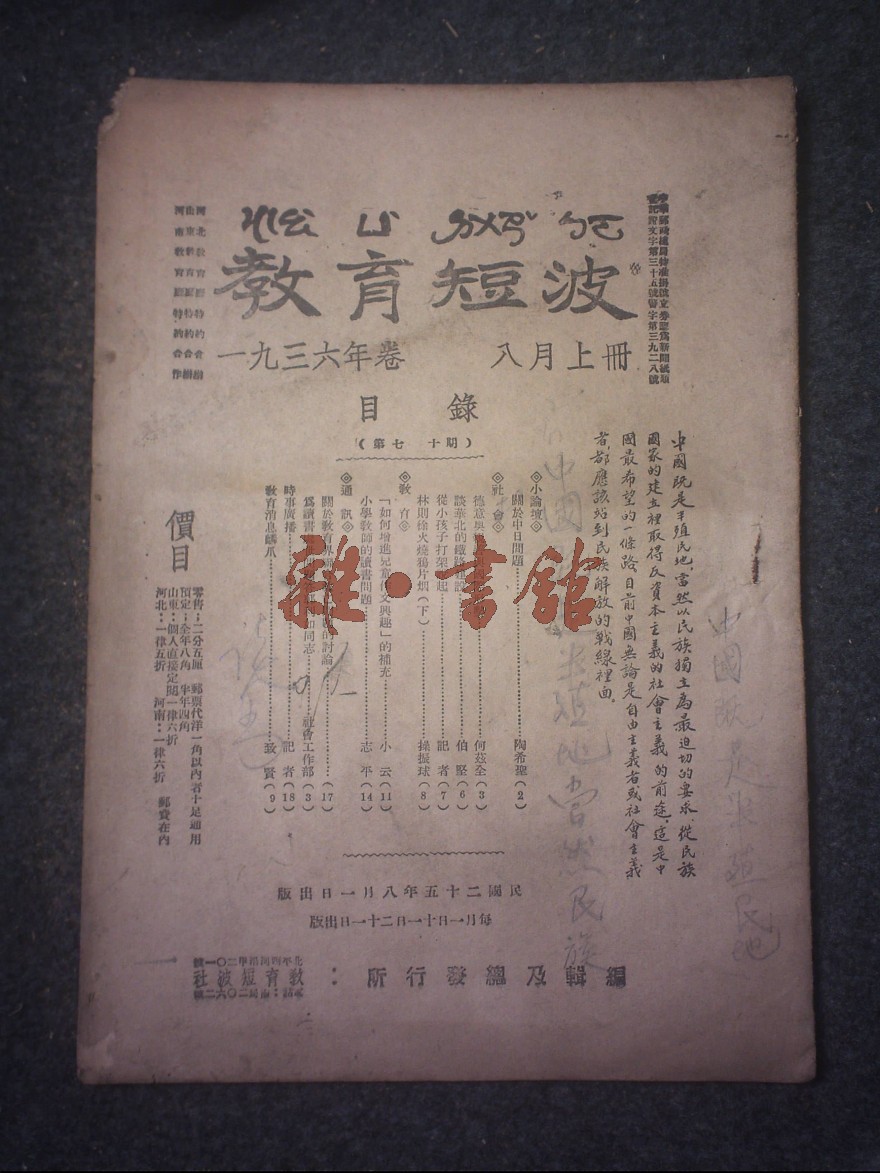 教育短波
一九三六年卷 八月上冊
目錄
(第七十期)
中華郵政
河北教育廳特約合編
山東教育廳特約合編
河南教育廳特約合作
中國既是半殖民地，當然以民族獨立為最迫切的要求，從民族
國家的建立裡取得反資本主義的社會主義的前途，這是中
國最希望的一條路，目前中國無論是自由主義者或社會主義
者，都應該站到民族解放的戰線裡面。
◎小論壇◎
關於中日問題 陶希聖(2)
◎社會◎
何茲全(3)
談華北的鐵路 伯堅(6)
從小孩子打架 記者(7)
林則徐火燒鴉片烟(下) 操振球(8)
◎教育◎
「如何增進兒童作文興趣」的補充 小云(11)
小學教師的讀書問題 志平(14)
◎通訊◎
關於教育界 的討論 (17)
為讀書 同志 社會工作部(3)
時事廣播 記者(18)
教育消息鱗爪 致賢(9)
價目
零售：二分五厘 郵票代洋一角以內者十足通用
預定：全年八角 半年四角
山東：個人直接定閱一律六折
河北：一律五折 河南：一律六折 郵費在內
民國二十五年八月一日出版
每月一日十一日二十一日出版
編輯及總發行所：
教育短波社
雜·書館
中國既是半殖民地
中國 半殖地當然民族